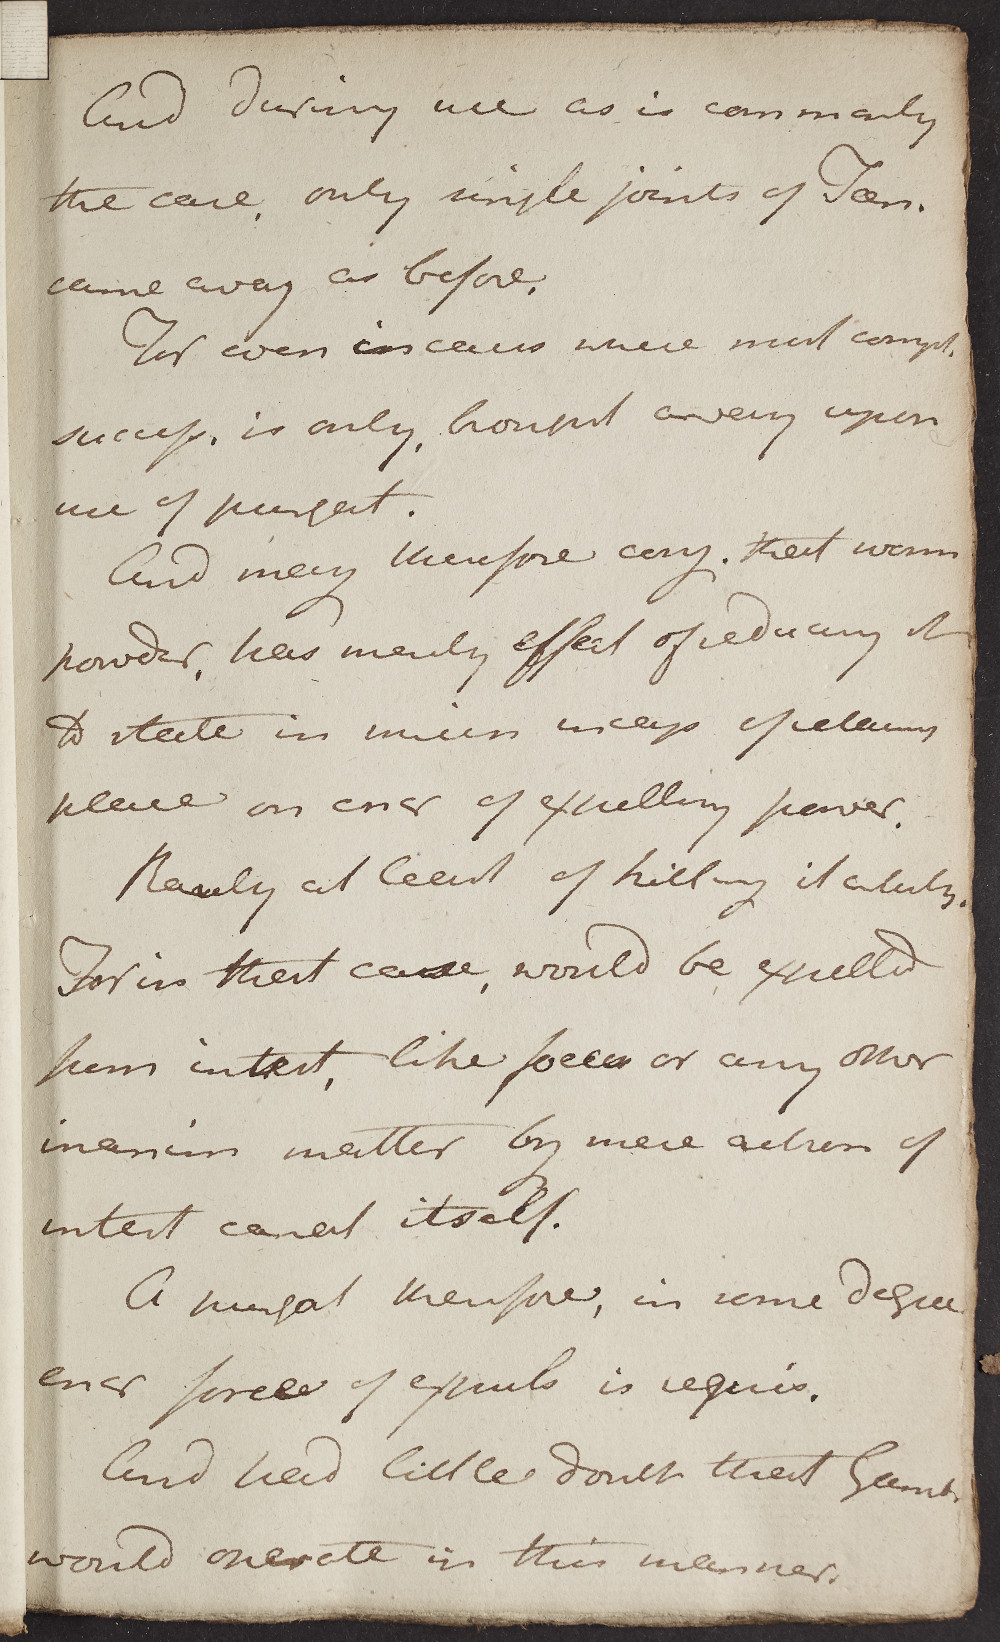 And during use as is commonly
the case, only single joints of Tæn.
came away as before.
For even in cases where most compl.
success. is only, brought away upon
use of purgat.
And may therefore conj. that worm
powder, has merely effect of reducing it
to state in which incap. of retaining
place on encr of expelling power.
Rarely at least of killing it absolutely.
For in that case, would be expelled
from intest, like foeces or any other
inanim matter by mere action of
intest canal itself.
A purgat therefore, in some degree
encr force of expuls is requis.
And had little doubt that Gamb.
would operate in this manner.